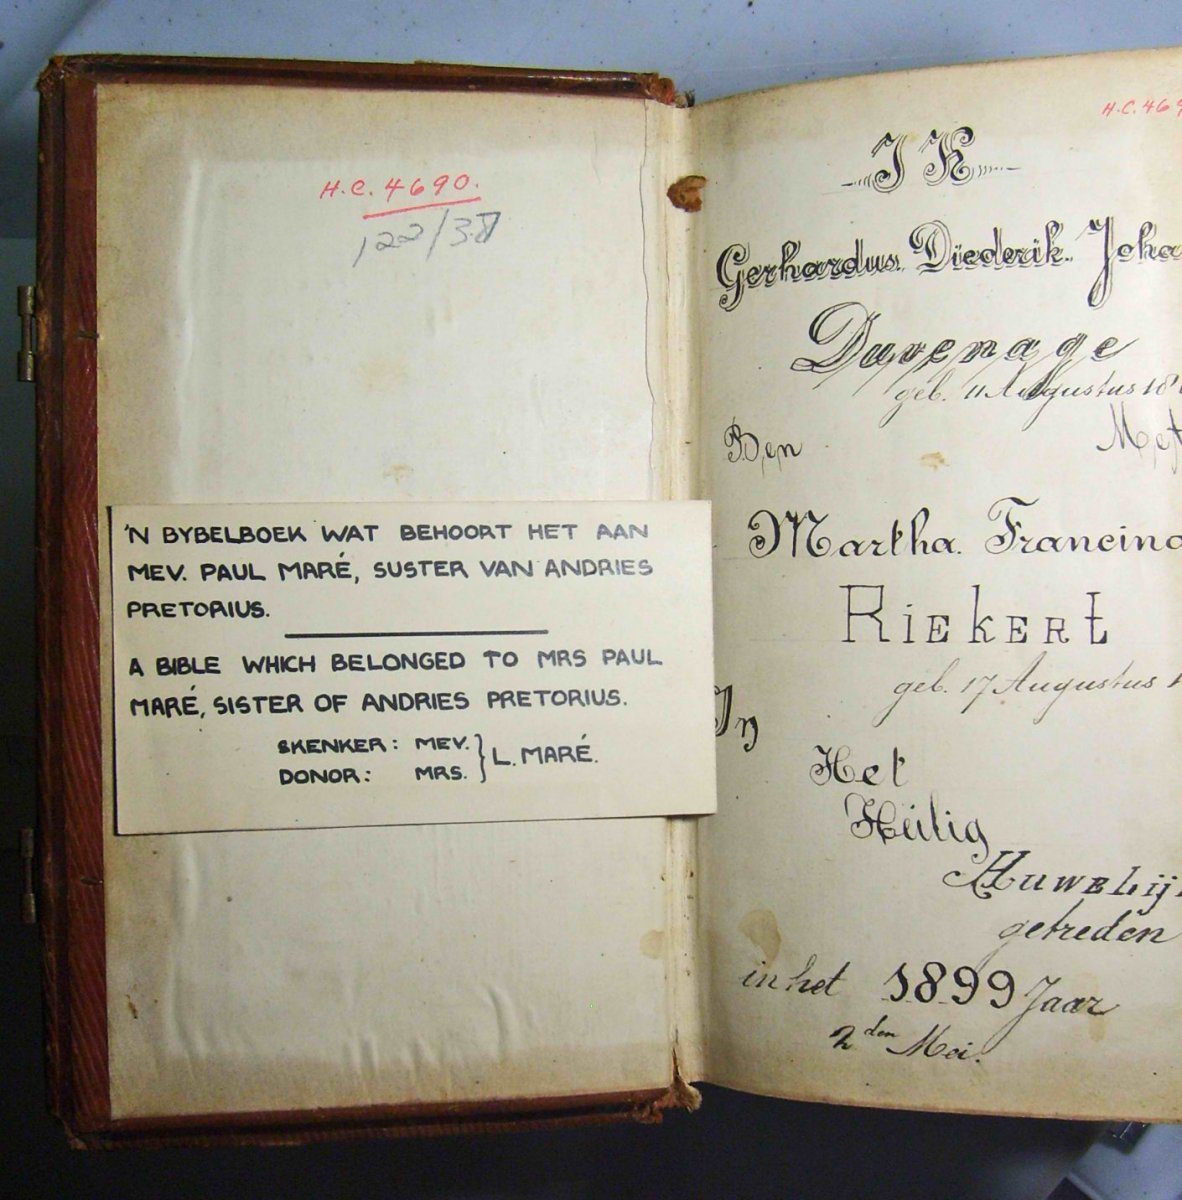 H.C. 4690.
122/37
'N BYBELBOEK WAT BEHOORT HET AAN
MEV. PAUL MARÉ, SUSTER VAN ANDRIES
PRETORIUS.
A BIBLE WHICH BELONGED TO MRS PAUL
MARÉ, SISTER OF ANDRIES PRETORIUS.
SKENKER: MEV.
DONOR: MRS. } L. MARÉ.
H.C. 469
IK
Gerhardus Diederik Joha
Duvenage
geb. 11 Augustus 18
Ben Met
Martha. Francina
RIEKERt
geb. 17 Augustus 1
In
Het
Heilig
Huwelij
getreden
in het 1899 Jaar
2den Mei.